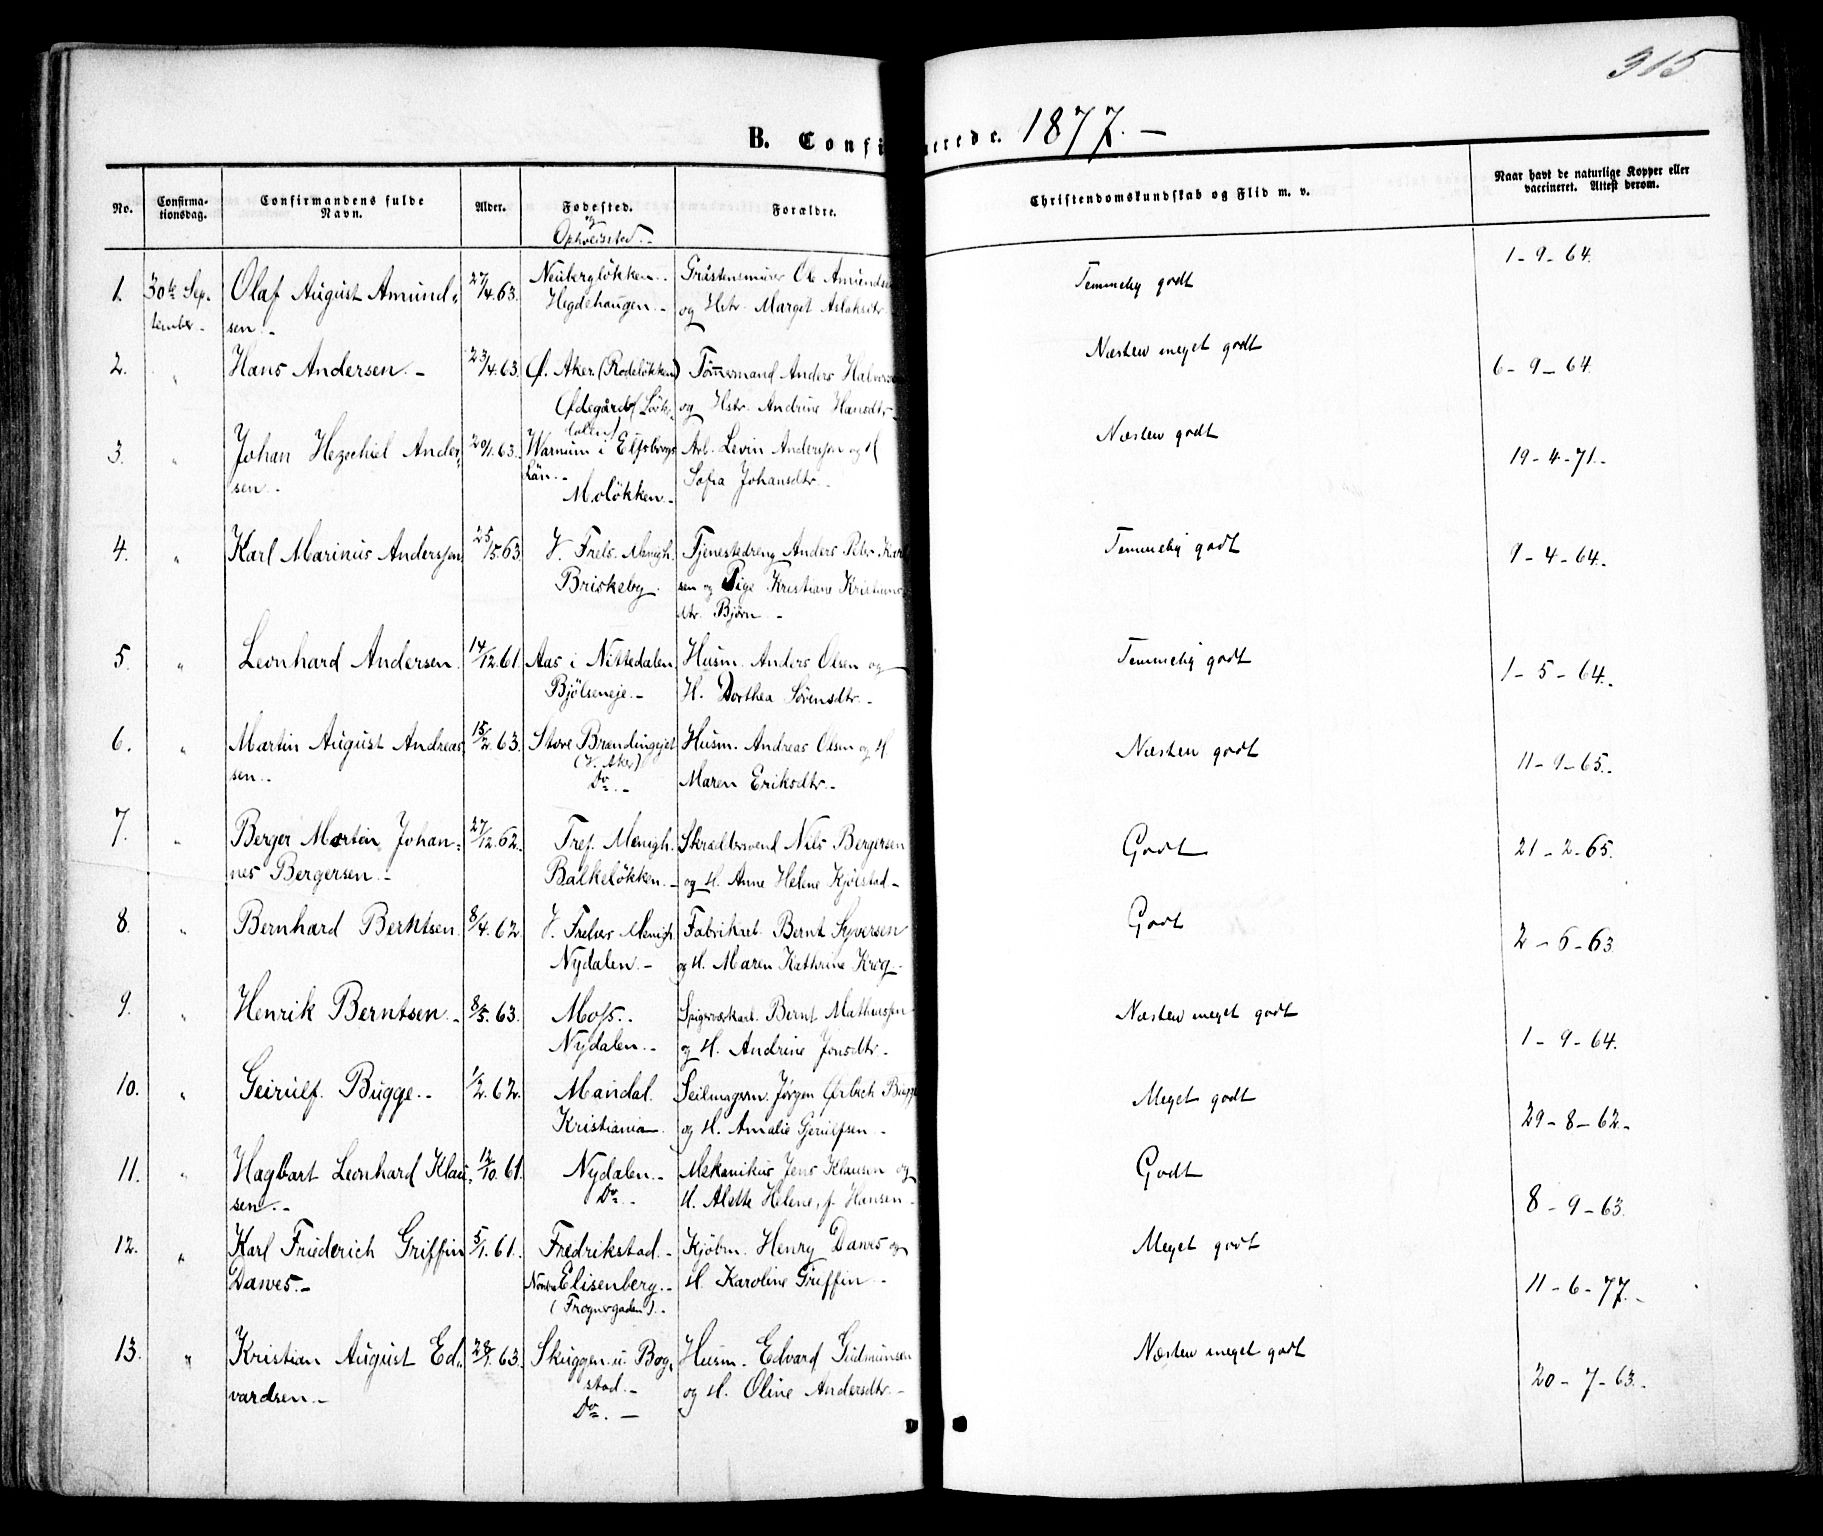 315
B. Confirmerede. 1877. —
No. Confirmationsdag. Confirmandens fulde Navn. Alder. Fødested. og Opholdssted. Forældre. Christendomskundskab og Flid m. v. Naar havt de naturlige Kopper eller vaccineret. Attest derom.
1. 30te Sep. Olaf August Amund- 27/4.63. Neubergløkken. Gråstensmurer Ole Amundsen Temmelig godt 1-9-64.
tember. sen. Hegdehaugen. og Hstr. Marget Aslaksdtr.
2. " Hans Andersen. 23/4.63. Ø. Aker. (Rodeløkken) Tømmermand Anders Halvorsen Næsten meget godt 6-9-64.
Ødegården og Hstr. Andrine Hansdtr.
3. " Johan Hezechiel Ander- 20/1.63. Warnum i Elfsborgs Arb. Levin Andersson og H Næsten godt 19-4-71.
sen. Län. Sofia Johansdtr.
Moløkken.
4. " Karl Marinus Anderssen 25/5.63. V. Frels. Menigh. Tjenestedreng Anders Peter Karl Temmelig godt 9-4-64.
Briskeby. sen og Pige Kristiane Kristians
dtr. Bjørn.
5. " Leonhard Andersen. 14/12.61. Aas i Nittedalen. Husm. Anders Olsen og Temmelig godt 1-5-64.
Bjølseneje. H. Dorthea Sørensdtr.
6. " Martin August Andreas 15/2.63. Store Brændingejet Husm. Andreas Olsen og H Næsten godt 11-9-65.
sen. (V. Aker) Maren Eriksdtr.
Do.
7. " Berger Martin Johan- 27/12.62. Tref. Menigh. Skræddersvend Nils Bergersen Godt 21-2-65.
nes Bergersen. Balkeløkken. og H. Anne Helene Kjølstad
8. " Bernhard Berntsen. 8/4.62. V. Frelsers Menigh. Fabrikarb. Bernt Syversen Godt 2-6-63.
Nydalen. og H. Maren Kathrine Krog.
9. " Henrik Berntsen. 8/5.63. Moss. Spigerværkarb. Bernt Mathiessen Næsten meget godt 1-9-64.
Nydalen. og H. Andrine Jonsdtr.
10. " Geirulf Bugge. 1/2.62. Mandal. Seilmagerm. Jørgen Ørbech Bugge Meget godt 29-8-62.
Kristiania. og H. Amalie Gjerulfsen
11. " Hagbart Leonhard Klau- 12/10.61. Nydalen. Mekanikus Jens Klausen og Godt 8-9-63.
sen. Do. H. Alette Helene, f. Hansen
12. " Karl Friederich Griffin 5/1.61. Fredrikstad. Kjøbm. Henry Dawes og Meget godt 11-6-77.
Dawes. Nordre Elisenberg. H. Karoline Griffin
(Frognergaden).
13. " Kristian August Ed- 28/1.63. Skuggen u. Bog- Husm. Edvard Gudmunsen Næsten meget godt 20-7-63.
vardsen. stad. og H. Oline Andersdtr.
Do.